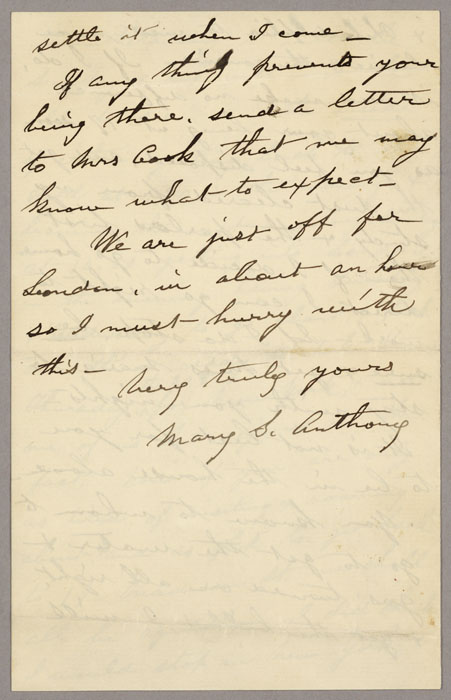 settle it when I come –
If any thing prevents your
being there, send a letter
to Mrs Cook that we may
know what to expect –
We are just off for
London, in about an hour
so I must hurry with
this –
Very truly yours
Mary S. Anthony